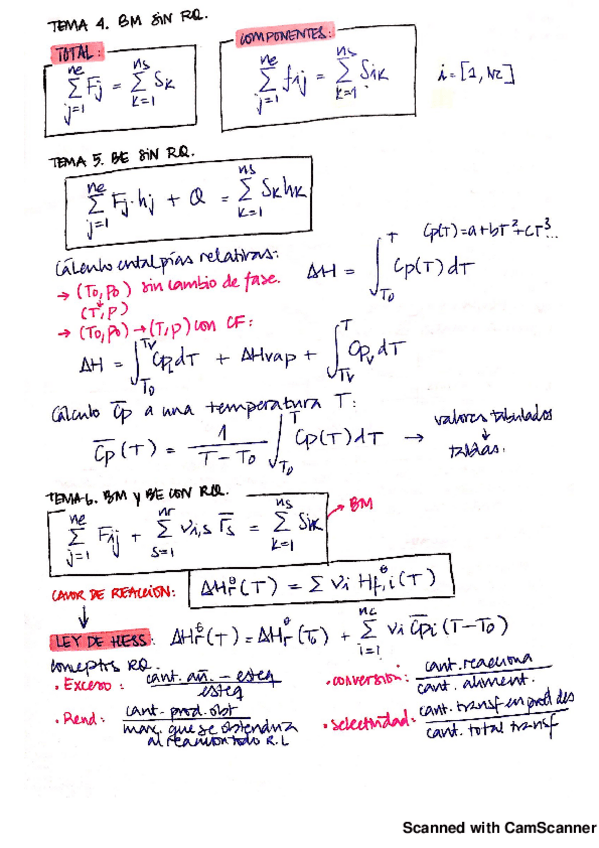 TEMA 4. BM SIN RQ.
TOTAL: COMPONENTES:
∑_{j=1}^{ne} Fj = ∑_{k=1}^{ns} Sk   ∑_{j=1}^{ne} fij = ∑_{k=1}^{ns} Sik   i = [1, Nc]
TEMA 5. BE SIN RQ.
∑_{j=1}^{ne} Fj·hj + Q = ∑_{k=1}^{ns} Sk hk
Cálculo entalpías relativas:
→ (To, Po) sin cambio de fase.
↓
(T, P)
ΔH = ∫_{To}^{T} Cp(T) dT   Cp(T)=a+bT²+cT³...
→ (To, Po) → (T, P) con CF:
ΔH = ∫_{To}^{Tv} Cpl dT + ΔHvap + ∫_{Tv}^{T} Cpv dT
Cálculo C̄p a una temperatura T:
C̄p (T) = 1/(T - To) ∫_{To}^{T} Cp(T) dT → valores tabulados
↓
tablas.
TEMA 6. BM y BE CON RQ.
∑_{j=1}^{ne} Fij + ∑_{s=1}^{nr} νi,s r̄s = ∑_{k=1}^{ns} Sik → BM
CALOR DE REACCIÓN: ΔHr^θ(T) = Σ νi Hf,i^θ(T)
↓
LEY DE HESS: ΔHr^θ(T) = ΔHr^θ(To) + ∑_{i=1}^{nc} νi C̄pi (T-To)
conceptos RQ.
• Exceso: cant. añ. - esteq / esteq
• conversión: cant. reacciona / cant. aliment.
• Rend: cant. prod. obt / max. que se obtendría al reaccionar todo R.L
• selectividad: cant. transf en prod des / cant. total transf
Scanned with CamScanner